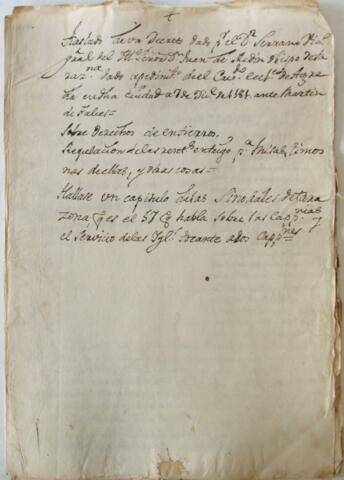 Traslado de un Decreto dado pr el Dr Serrano Vic.
gral del Illo Señor Dn Juan de Redin obispo de ta
razna dado a pedimto del Cavdo ecclco de
en dha ciudad a 7 de Dice 1581. ante Martin
de Falces
Sobre derechos de entierro,
Regulacion de las rentas en trigo pa Misas, limos
nas de ellas, y otras cosas
Hallase un capitulo de las Sinodales de tara
zona q es el 57 q habla sobre las Cappnias y
el servicio de las Iglas tocante a dos Cappnes